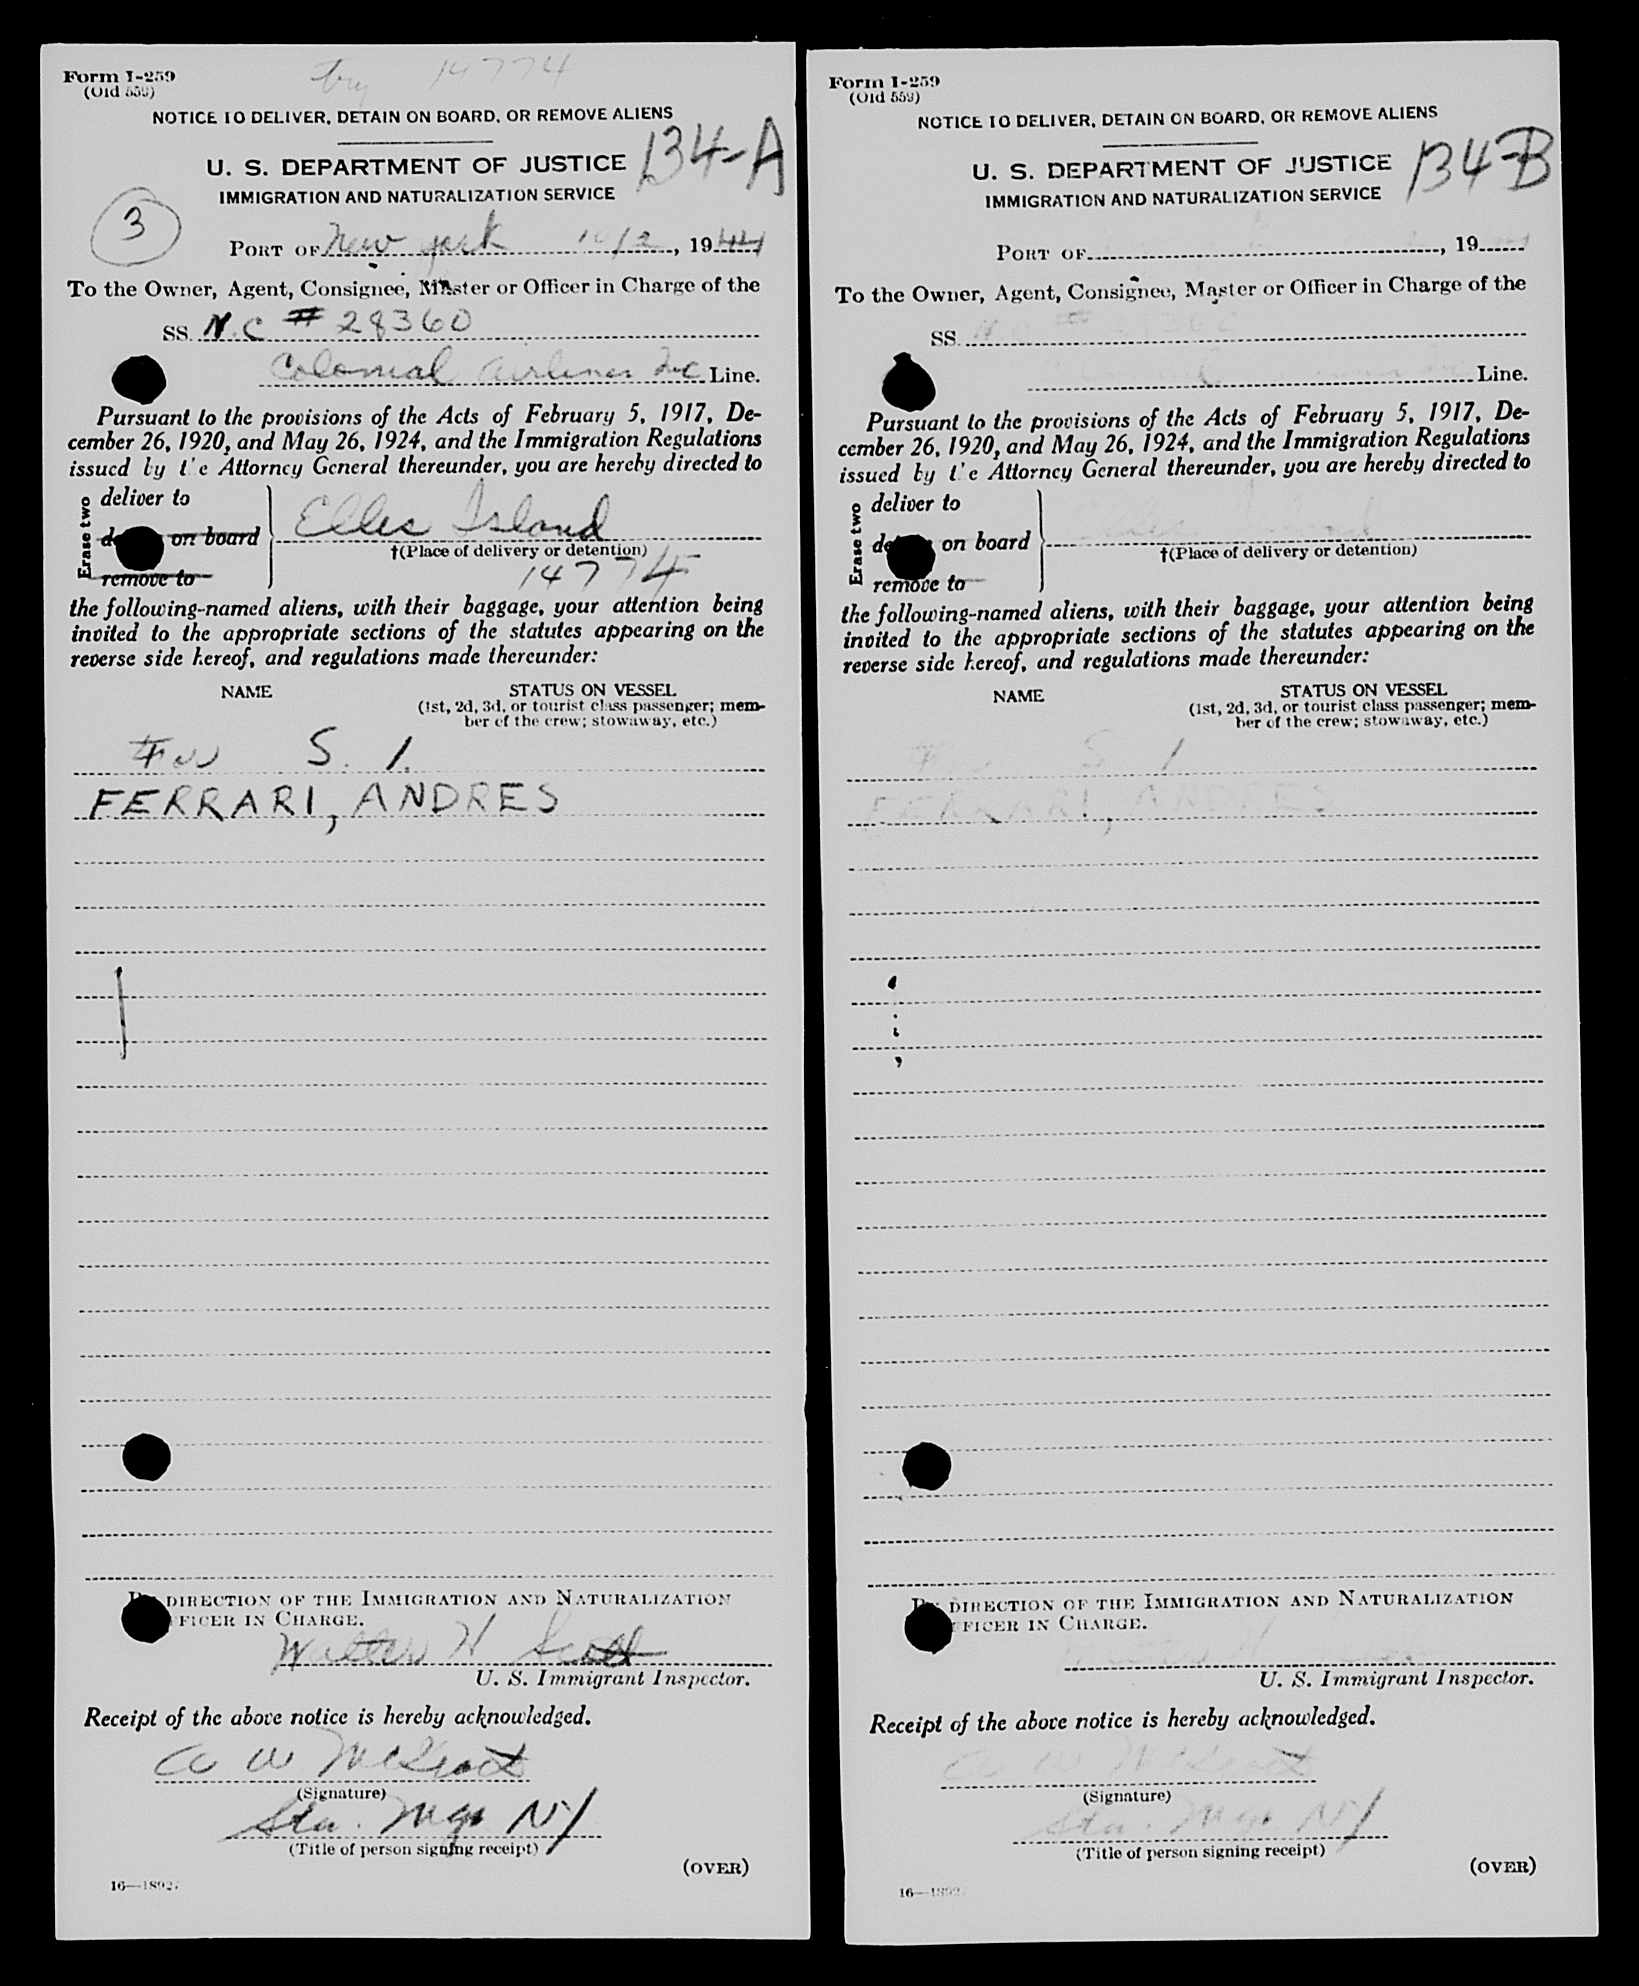 Form I-259
(Old 559)
14774
NOTICE TO DELIVER, DETAIN ON BOARD, OR REMOVE ALIENS
134-A
U. S. DEPARTMENT OF JUSTICE
IMMIGRATION AND NATURALIZATION SERVICE
3
PORT OF New York 10/2, 1944
To the Owner, Agent, Consignee, Master or Officer in Charge of the
SS. N.C # 28360
Colonial Airlines Inc Line.
Pursuant to the provisions of the Acts of February 5, 1917, De-
cember 26, 1920, and May 26, 1924, and the Immigration Regulations
issued by the Attorney General thereunder, you are hereby directed to
Erase two
deliver to
on board
remove to
Elles Island
†(Place of delivery or detention)
14774
the following-named aliens, with their baggage, your attention being
invited to the appropriate sections of the statutes appearing on the
reverse side hereof, and regulations made thereunder:
NAME
STATUS ON VESSEL
(1st, 2d, 3d, or tourist class passenger; mem-
ber of the crew; stowaway, etc.)
S. I.
FERRARI, ANDRES
DIRECTION OF THE IMMIGRATION AND NATURALIZATION
FICER IN CHARGE.
Walter H Scott
U. S. Immigrant Inspector.
Receipt of the above notice is hereby acknowledged.
A W
(Signature)
Sta. Mgr NY
(Title of person signing receipt)
(OVER)
Form I-259
(Old 559)
NOTICE TO DELIVER, DETAIN ON BOARD, OR REMOVE ALIENS
134-B
U. S. DEPARTMENT OF JUSTICE
IMMIGRATION AND NATURALIZATION SERVICE
PORT OF , 19
To the Owner, Agent, Consignee, Master or Officer in Charge of the
SS.
Line.
Pursuant to the provisions of the Acts of February 5, 1917, De-
cember 26, 1920, and May 26, 1924, and the Immigration Regulations
issued by the Attorney General thereunder, you are hereby directed to
Erase two
deliver to
on board
remove to
†(Place of delivery or detention)
the following-named aliens, with their baggage, your attention being
invited to the appropriate sections of the statutes appearing on the
reverse side hereof, and regulations made thereunder:
NAME
STATUS ON VESSEL
(1st, 2d, 3d, or tourist class passenger; mem-
ber of the crew; stowaway, etc.)
S I
FERRARI, ANDRES
DIRECTION OF THE IMMIGRATION AND NATURALIZATION
FICER IN CHARGE.
U. S. Immigrant Inspector.
Receipt of the above notice is hereby acknowledged.
A W
(Signature)
Sta. Mgr NY
(Title of person signing receipt)
(OVER)